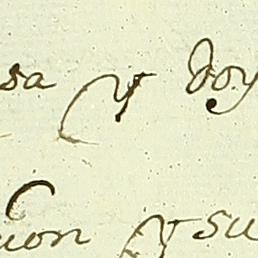 sa y doy
ion y su